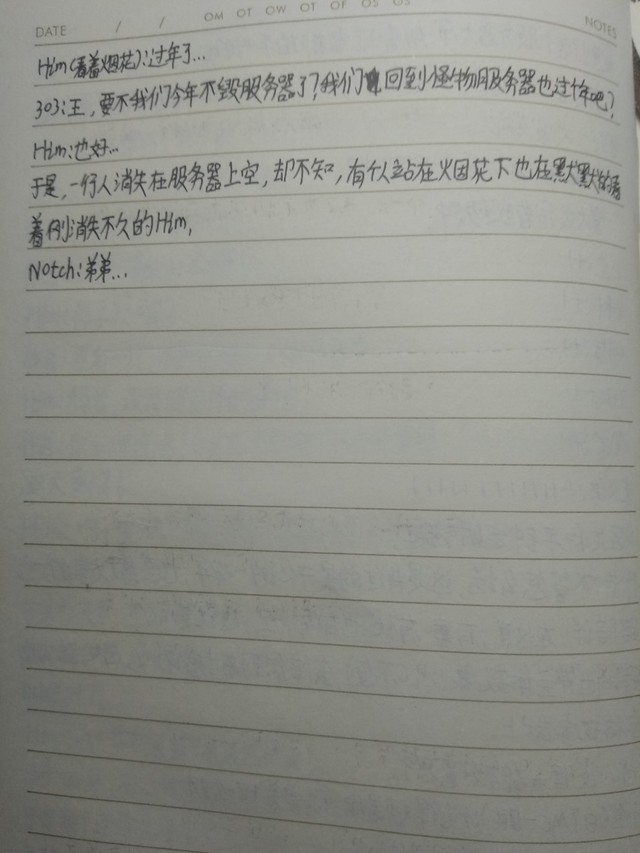 DATE / / OM OT OW OT OF OS OS NOTES
Him(看着烟花):过年了...
303:王,要不我们今年不毁服务器了?我们回到怪物服务器也过年吧?
Him:也好...
于是,一行人消失在服务器上空,却不知,有个人站在火烟花下也在默默的看
着刚消失不久的Him,
Notch:弟弟...